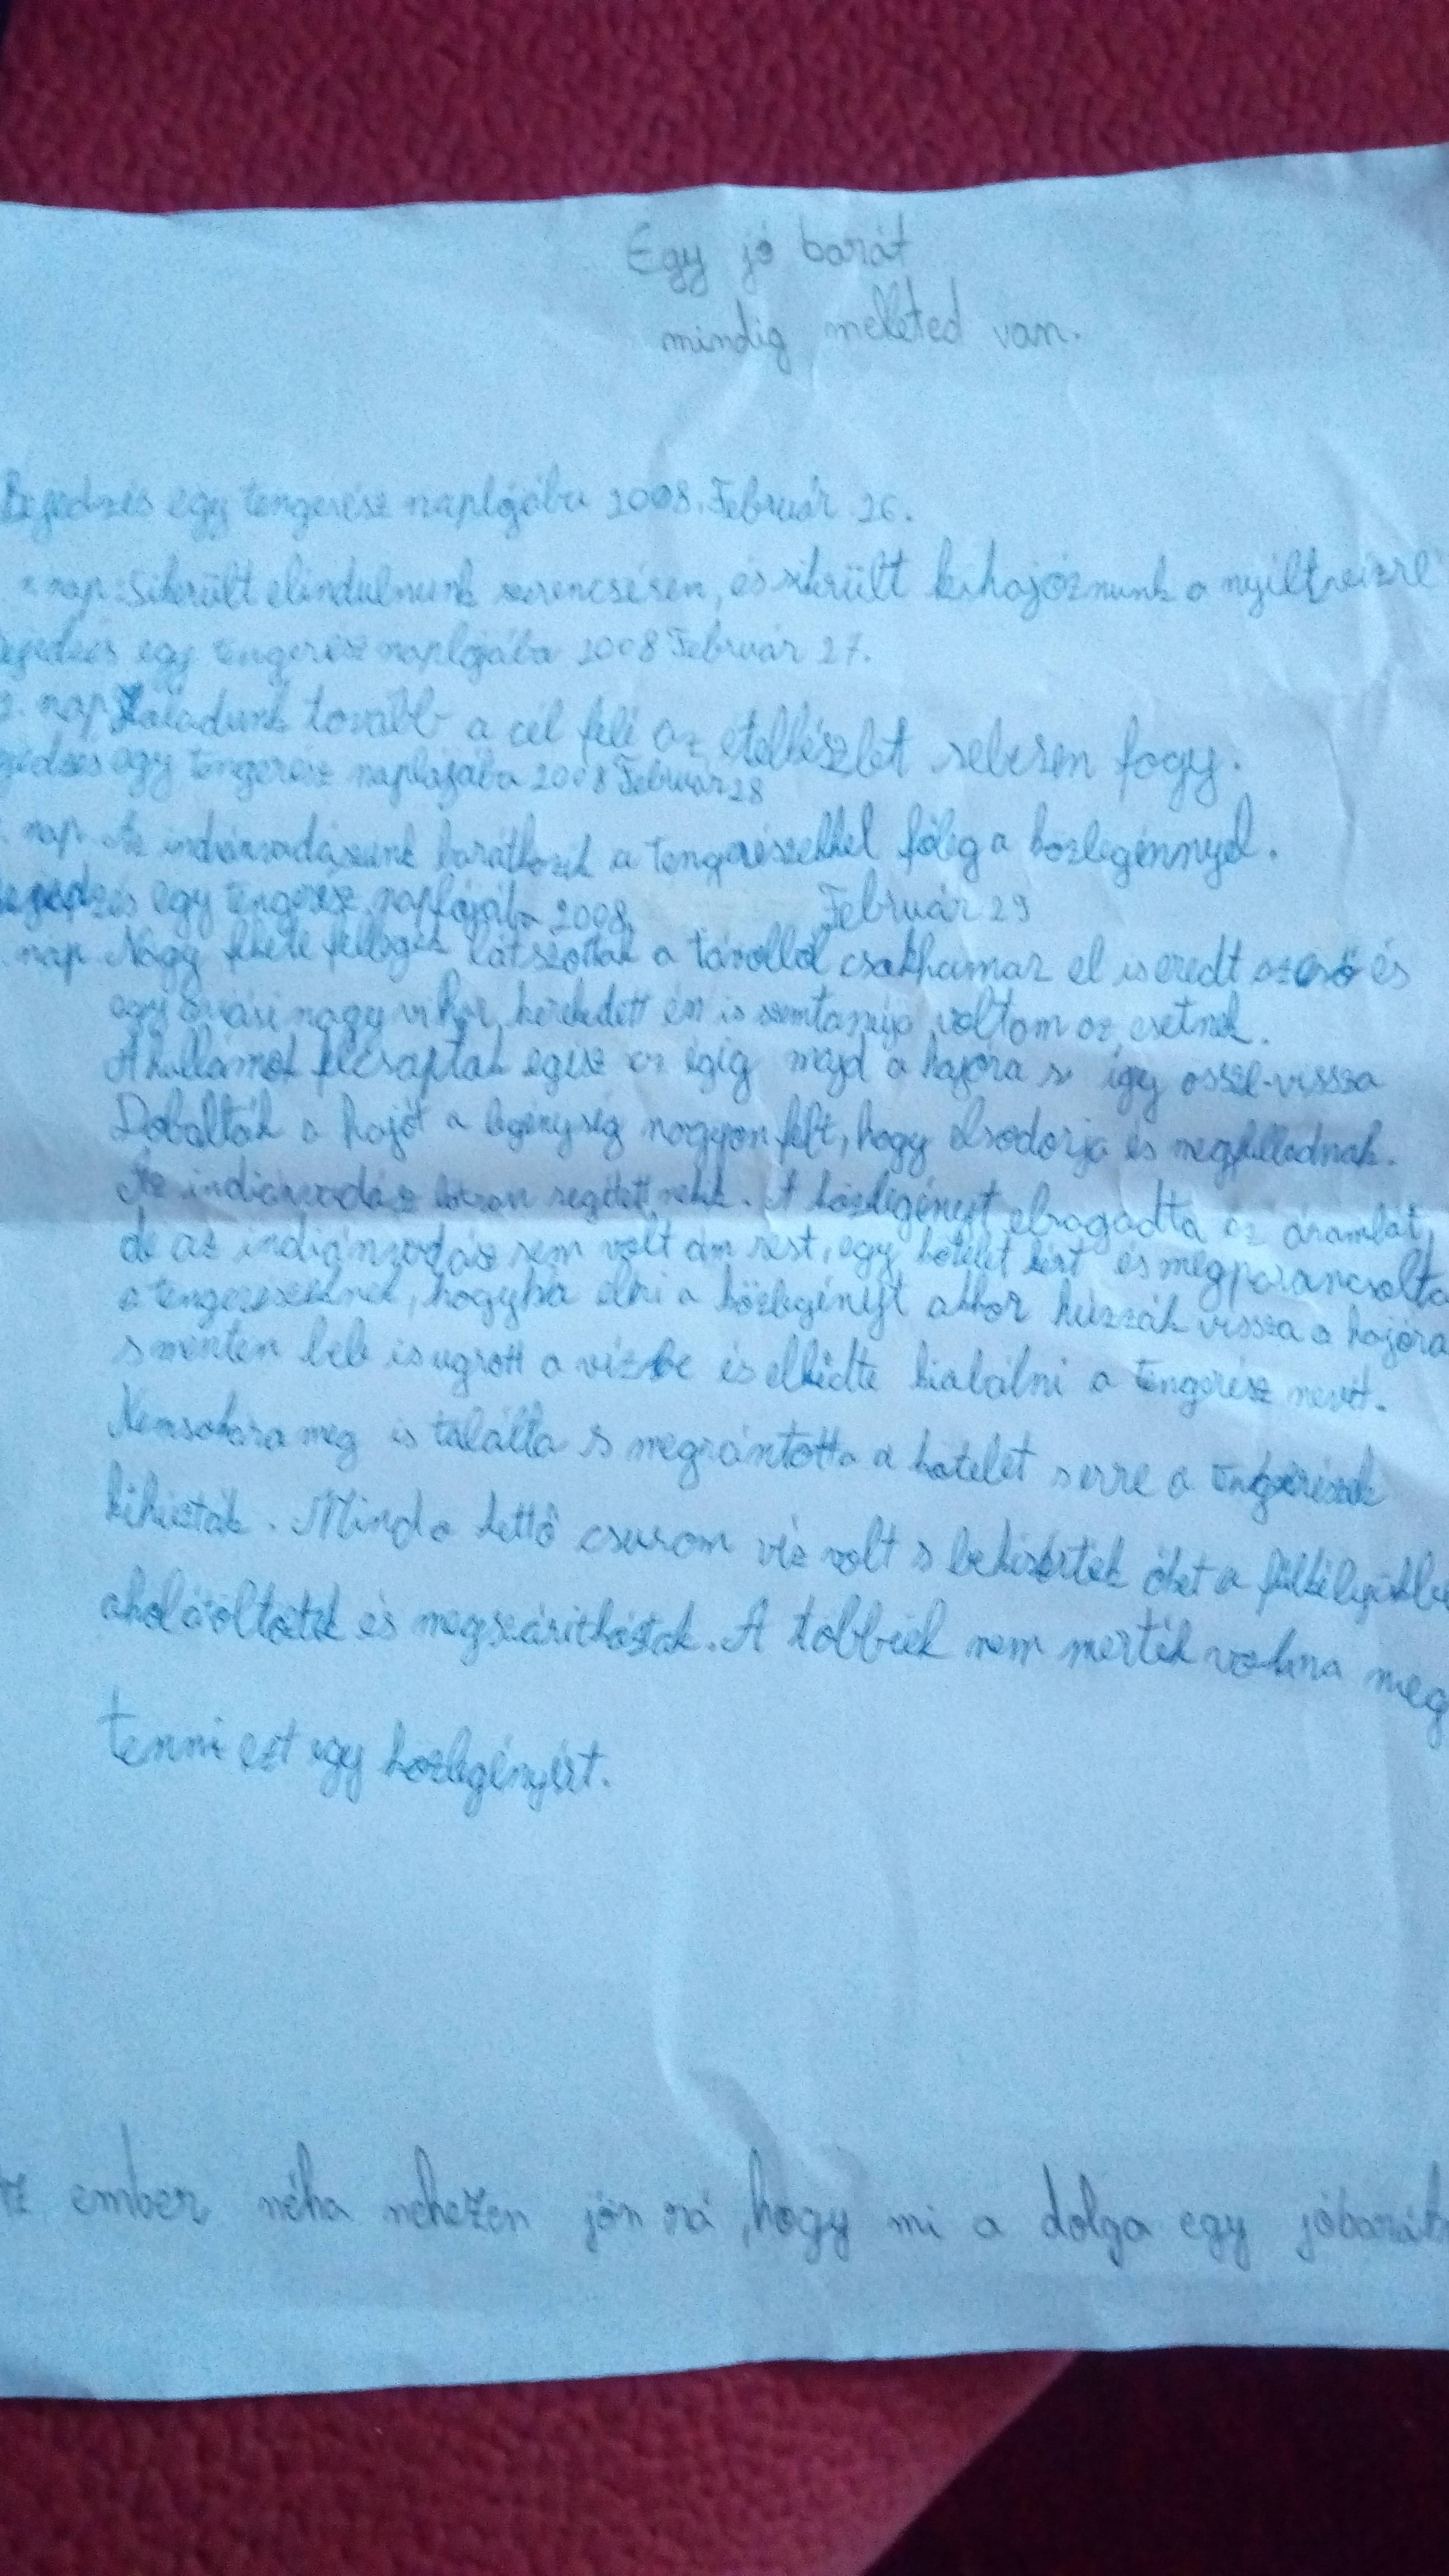 Egy jó barát
mindig melleted van.
Bejedzés egy tengerész naplójába 2008. Február 26.
nap: Sikerült elindulnunk szerencsésen, és sikrült kihajóznunk a nyílt
egy tengerész naplójába 2008 Február 27.
nap Haladunk tovább a cél felé az ételkészlet sebesen fogy.
egy tengerész naplajába 2008 Február 28
nap. Az indiánvadászunk barátkozik a tengerészekkel főleg a közlegénnyel.
egy tengerész naplójába 2008. Február 29
nap Nagy fekete fellegek látszottak a távolból csakhamar el is eredt az eső és
egy óriási nagy vihar kerekedett én is szemtanúja voltam az esetnek.
A hullámok felcsaptak egész az égig majd a hajóra s így össze-vissza
Dobálták a hajót a legénység nagyon félt, hogy elsodorja és megfulladnak.
Az indiánvadász segített nekik. A közlegényt elragadta az áramlat,
de az indiánvadász sem volt ám rest, egy kötelet kért és megparancsolta
a tengerészeknek, hogyha eléri a közlegényt akkor húzzák vissza a hajóra
s menten bele is ugrott a vízbe és elkedte kiabálni a tengerész nevét.
Nemsokára meg is találta s megrántotta a kötelet s erre a tengerészek
kihúzták. Mind a kettő csurom víz volt s bekisérték őket a
ahol átöltöztek és megszáritkóztak. A többiek nem merték volna meg
tenni ezt egy közlegényért.
ember néha nehezen jön rá, hogy mi a dolga egy